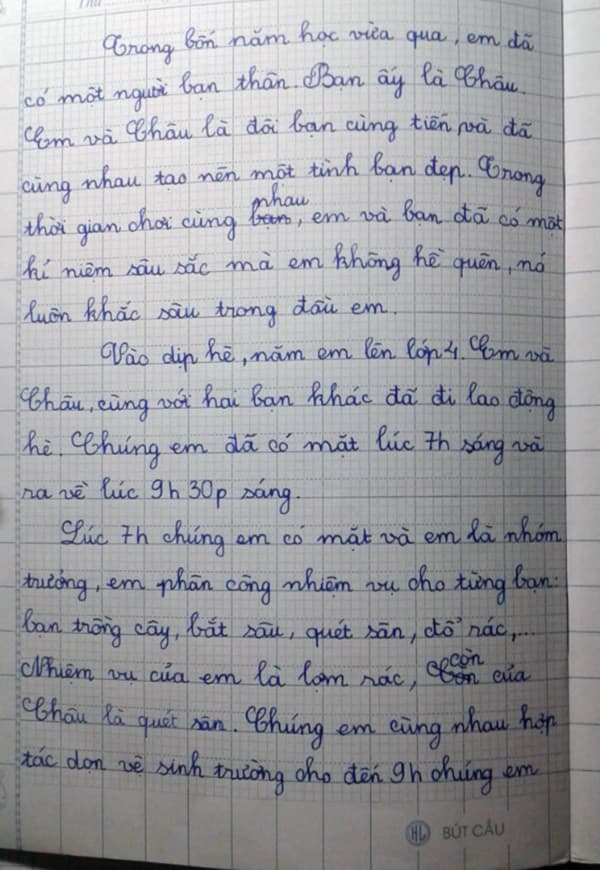 Trong bốn năm học vừa qua, em đã
có một người bạn thân. Bạn ấy là Châu.
Em và Châu là đôi bạn cùng tiến và đã
cùng nhau tạo nên một tình bạn đẹp. Trong
thời gian chơi cùng nhau, em và bạn đã có một
kỉ niệm sâu sắc mà em không hề quên, nó
luôn khắc sâu trong đầu em.
Vào dịp hè, năm em lên lớp 4. Em và
Châu, cùng với hai bạn khác đã đi lao động
hè. Chúng em đã có mặt lúc 7h sáng và
ra về lúc 9h 30p sáng.
Lúc 7h chúng em có mặt và em là nhóm
trưởng, em phân công nhiệm vụ cho từng bạn:
bạn trồng cây, bắt sâu, quét sân, đổ rác,...
Nhiệm vụ của em là lượm rác, còn của
Châu là quét sân. Chúng em cùng nhau hợp
tác dọn vệ sinh trường cho đến 9h chúng em
HL BÚT CÂU